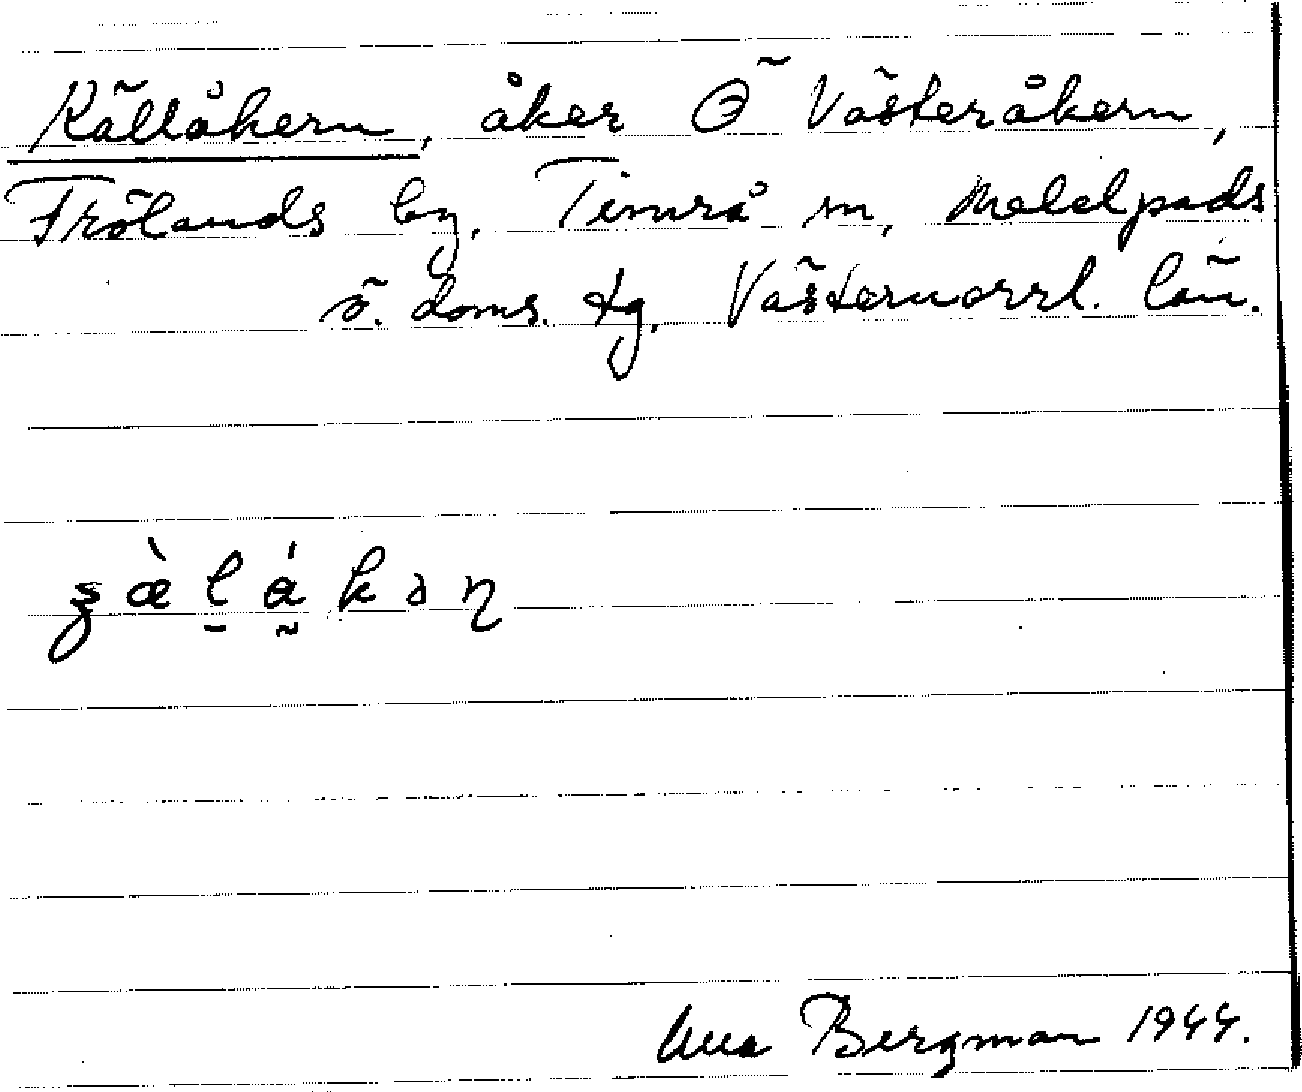 Källåkern, åker Ö Västeråkern,
Frölands by, Timrå sn, Medelpads
ö. doms. tg, Västernorrl. län.
ʂ æ̀ ḻ á̰ k ə ṇ
Bergman 1944.